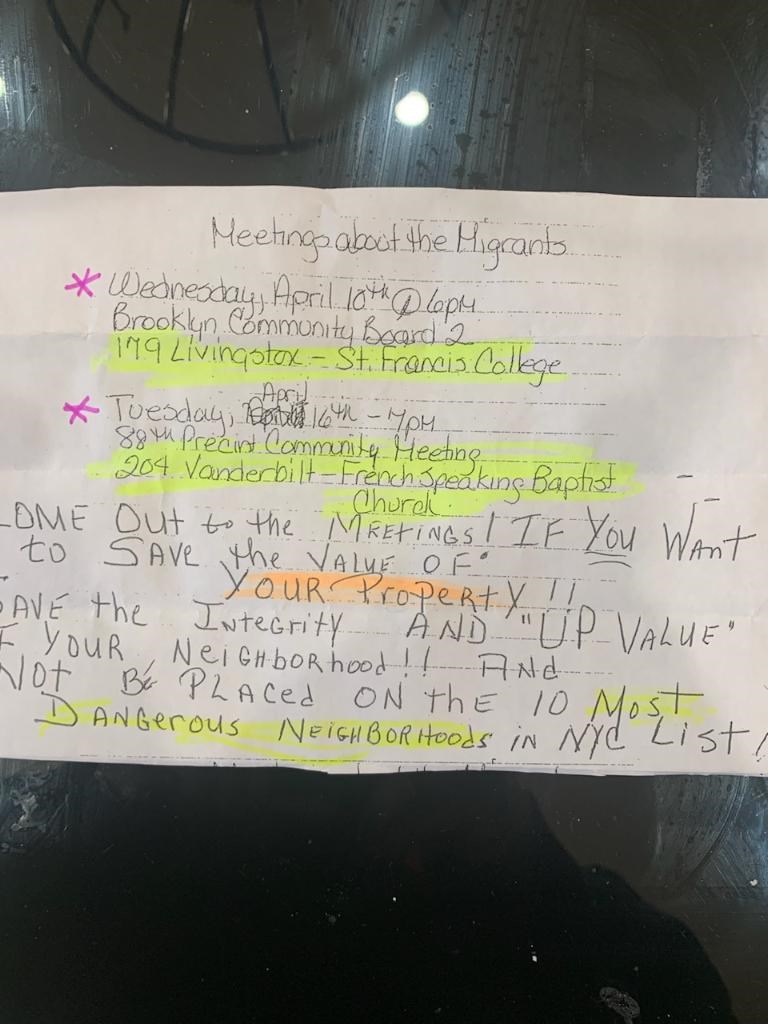 Meetings about the Migrants
* Wednesday, April 10th @ 6pm
Brooklyn Community Board 2
179 Livingstox - St. Francis College
April
* Tuesday, 16th - 7pm
88th Precint Community Meeting
204 Vanderbilt - French Speaking Baptist
Church
OME OUT to the MEETINGS! IF YOU WANT
TO SAVE the VALUE OF
YOUR PROPERTY!!
AVE the INTEGRITY AND "UP VALUE"
F YOUR NEIGHBORHOOD!! AND
NOT BE PLACED ON the 10 MOST
DANGEROUS NEIGHBORHOODS IN NYC LIST!